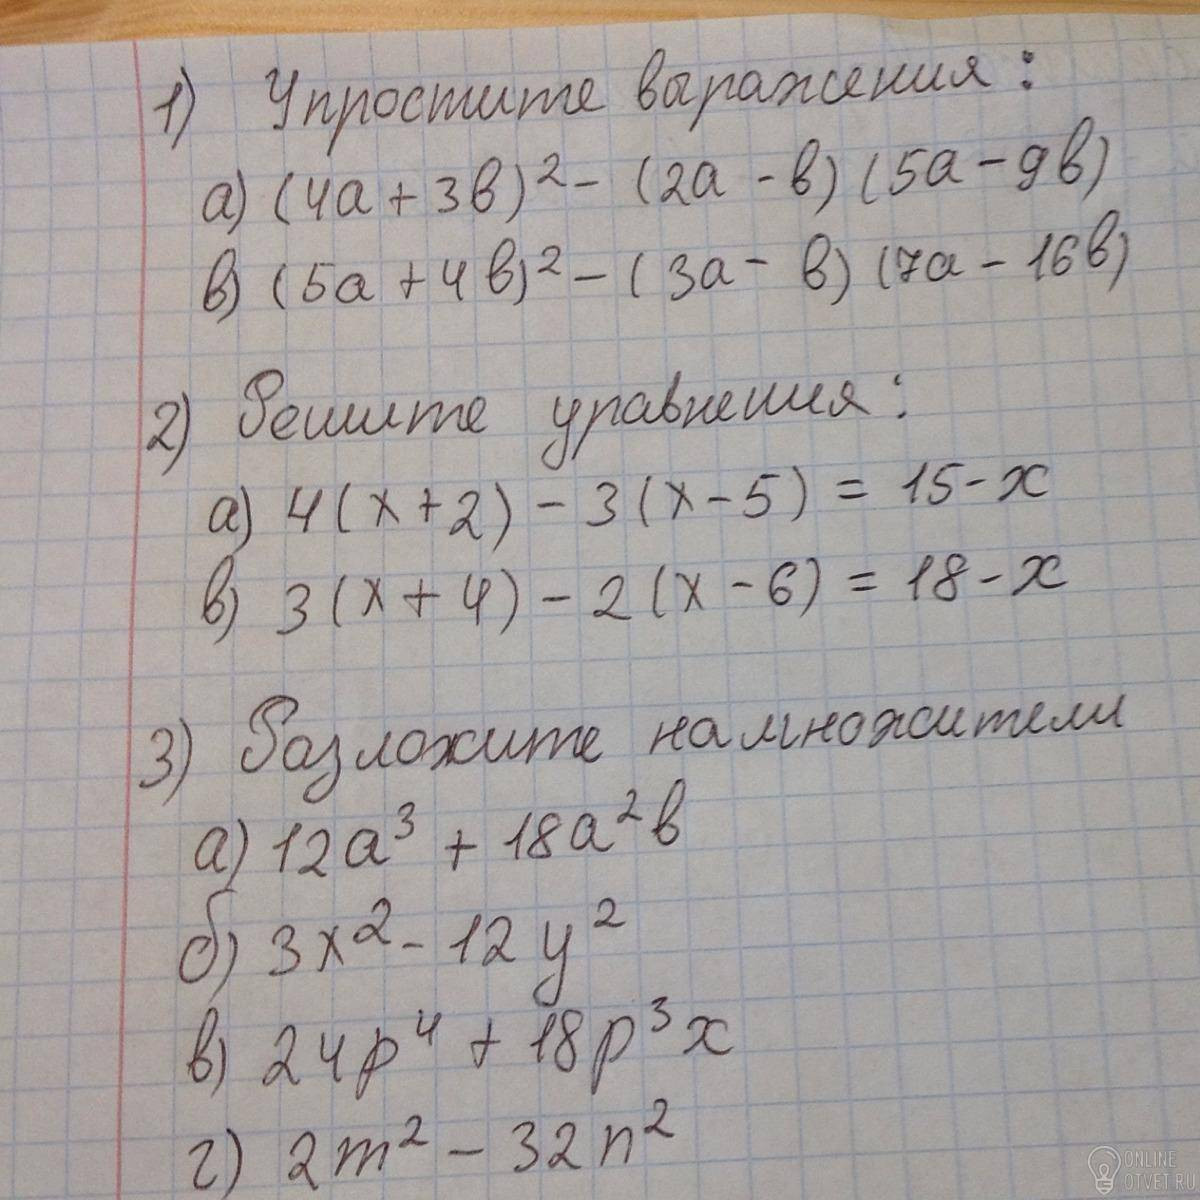 1) Упростите выражения:
а) (4а + 3в)² - (2а - в) (5а - 9в)
в) (5а + 4в)² - (3а - в) (7а - 16в)
2) Решите уравнения:
а) 4(х + 2) - 3(х - 5) = 15 - х
в) 3(х + 4) - 2(х - 6) = 18 - х
3) Разложите на множители
а) 12а³ + 18а²в
б) 3х² - 12у²
в) 24p⁴ + 18p³x
г) 2m² - 32n²
ONLINE
OTVET.RU